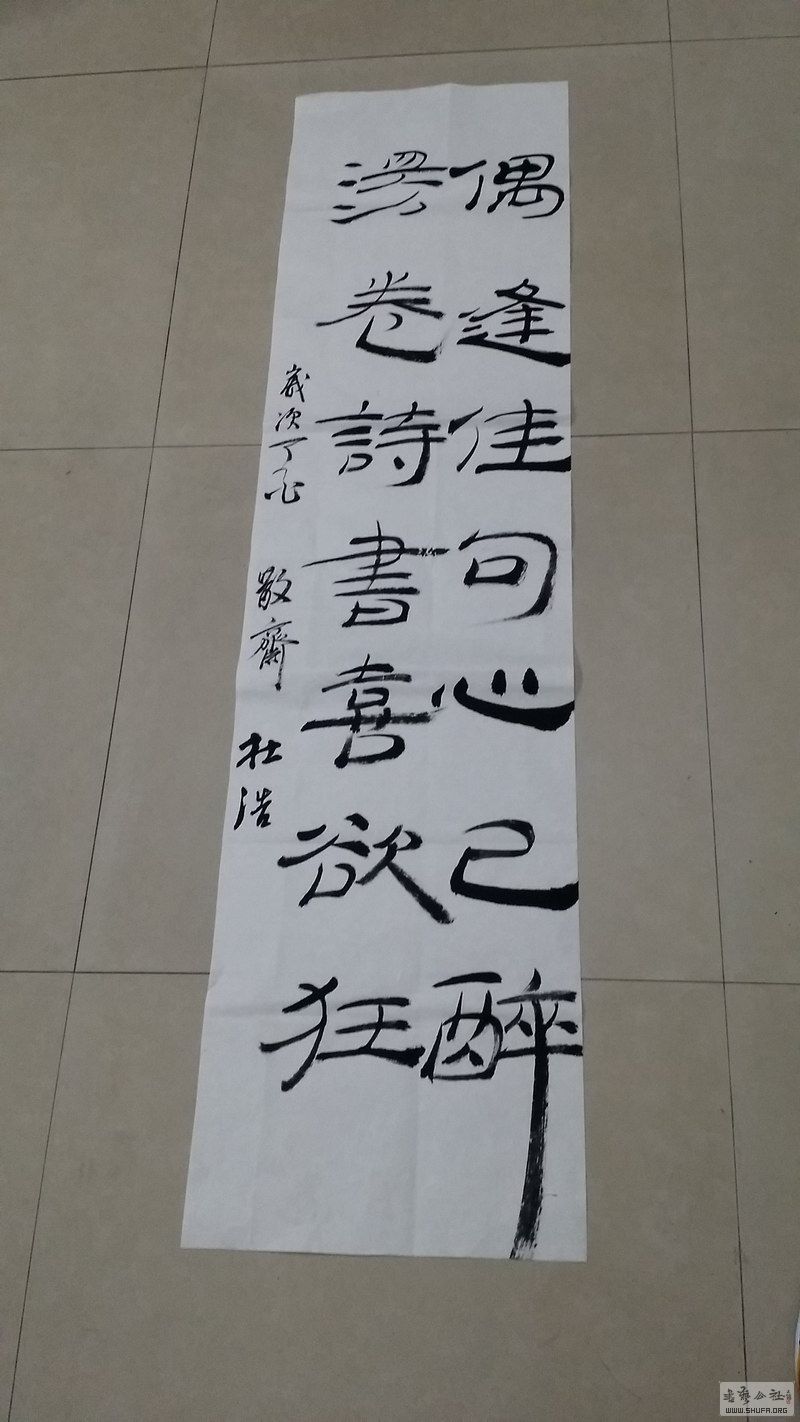 偶逢佳句心已醉
漫卷詩書喜欲狂
歲次丁酉 齋 杜浩
書藝公社
WWW.SHUFA.ORG